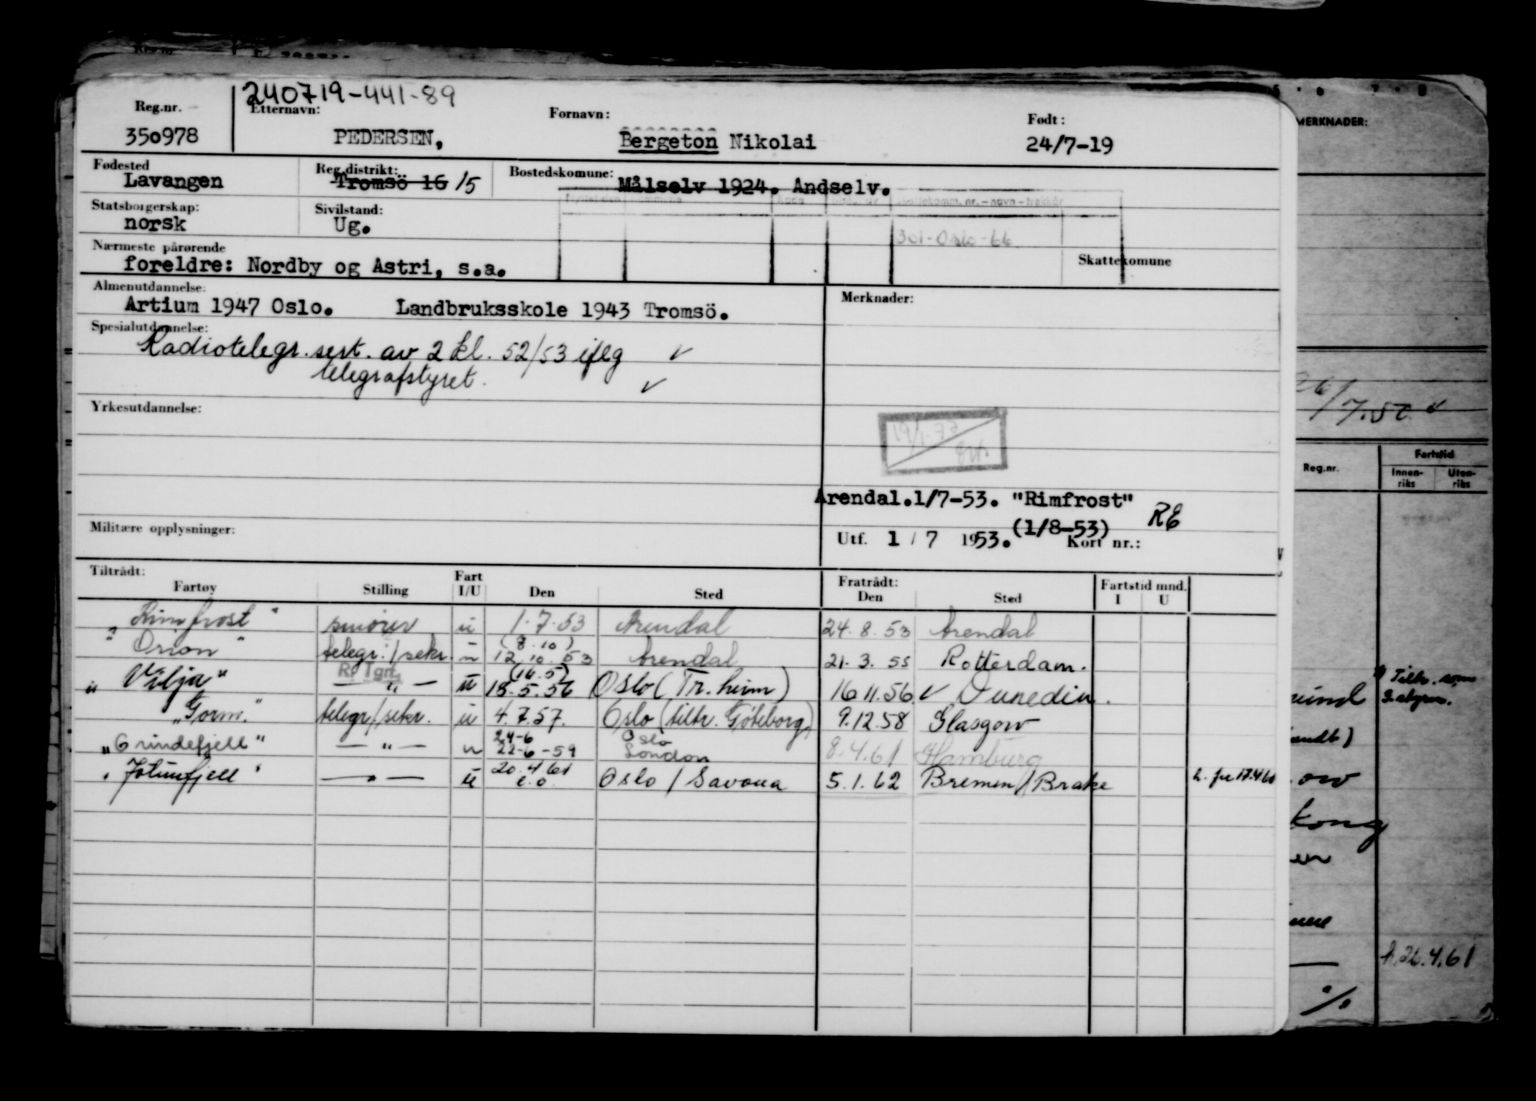 240719-441-89
Reg.nr. Etternavn: Fornavn: Født:
350978 PEDERSEN, Bergeton Nikolai 24/7-19
Fødested Reg.distrikt: Bostedskomune:
Lavangen Tromsö 16 15 Målselv 1924. Andselv.
Statsborgerskap: Sivilstand:
norsk Ug. 301-Oslo-66
Nærmeste pårørende Skattekomune
foreldre: Nordby og Astri, s.a.
Almenutdannelse: Merknader:
Artium 1947 Oslo. Landbruksskole 1943 Tromsö.
Spesialutdannelse:
Radiotelegr. sert. av 2 kl. 52/53 iflg ✓
telegrafstyret. ✓
Yrkesutdannelse:
Arendal.1/7-53. "Rimfrost"
(1/8-53) RE
Militære opplysninger: Utf. 1 / 7 1953. Kort nr.:
Tiltrådt: Fratrådt: Fartstid mnd.
Fartøy Stilling Fart I/U Den Sted Den Sted I U
"Rimfrost" smörer u 1.7.53 Arendal 24.8.53 Arendal
"Orion" telegr./sekr. u (8.10) 12.10.53 Arendal 21.3.55 Rotterdam.
"Vilja" R/Tgr. — " — u (16.5) 18.5.56 Oslo (Tr.heim) 16.11.56 ✓ Dunedin.
"Gorm." telegr/sekr. u 4.7.57. Oslo (tiltr. Göteborg) 9.12.58 Glasgow
"Grindefjell" — " — u 24-6 22-6-59 Oslo London 8.4.61 Hamburg
"Jotunfjell" — " — u 20.4.61 Oslo / Savona 5.1.62 Bremen/Brake
MERKNADER:
Reg.nr. Fartstid
Innen-riks Uten-riks
h.26.4.61